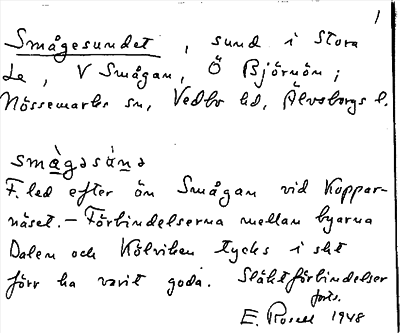 1
Smågesundet, sund i Stora
Le, V Smågan, Ö Björnön;
Nössemarks sn, Vedbo hd, Älvsborgs l.
smàgəsán̲ə
F. led efter ön Smågan vid Koppar-
näset. – Förbindelserna mellan byarna
Dalen och Kölviken tycks i sht
förr ha varit goda. Släktförbindelser
forts.
E. Rosell 1948